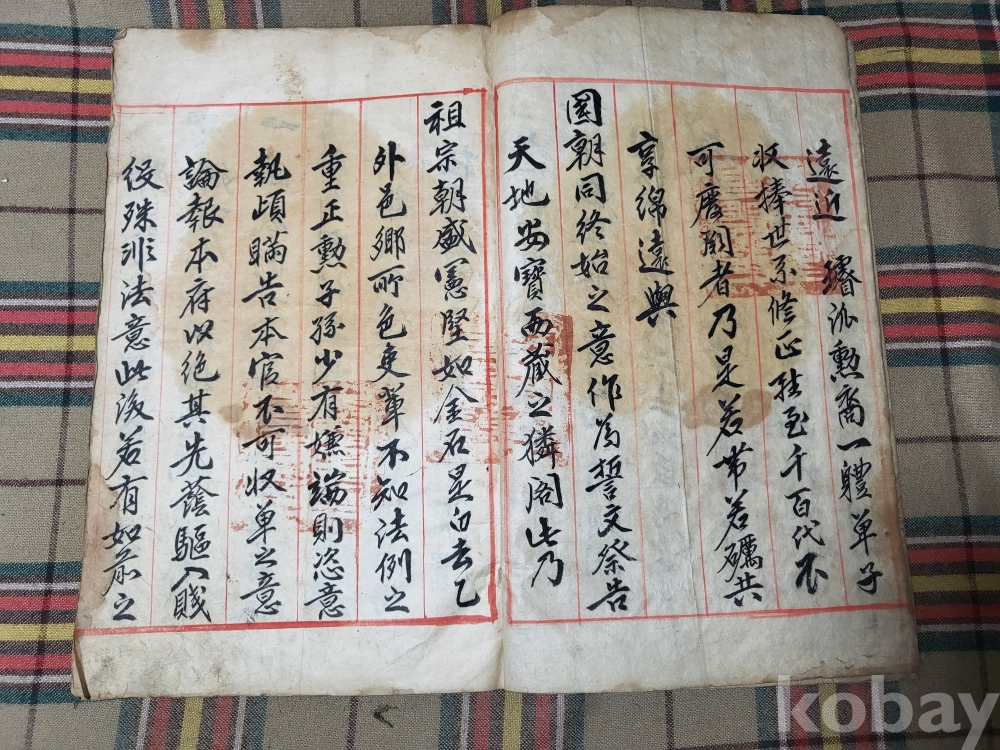 遠近 璿派勳裔一體單子
收捧世系修正雖至千百代不
可廢閣者乃是若帶若礪共
享綿遠與
國朝同終始之意作爲誓文祭告
天地安寶而藏之獜閣此乃
祖宗朝盛憲堅如金石是白去乙
外邑鄕所色吏軰不知法例之
重正勳子孫少有嫌端則恣意
執頉瞞告本官不可收单之意
論報本府以絶其先蔭驅入賤
役殊非法意此後若有如前之
kobay